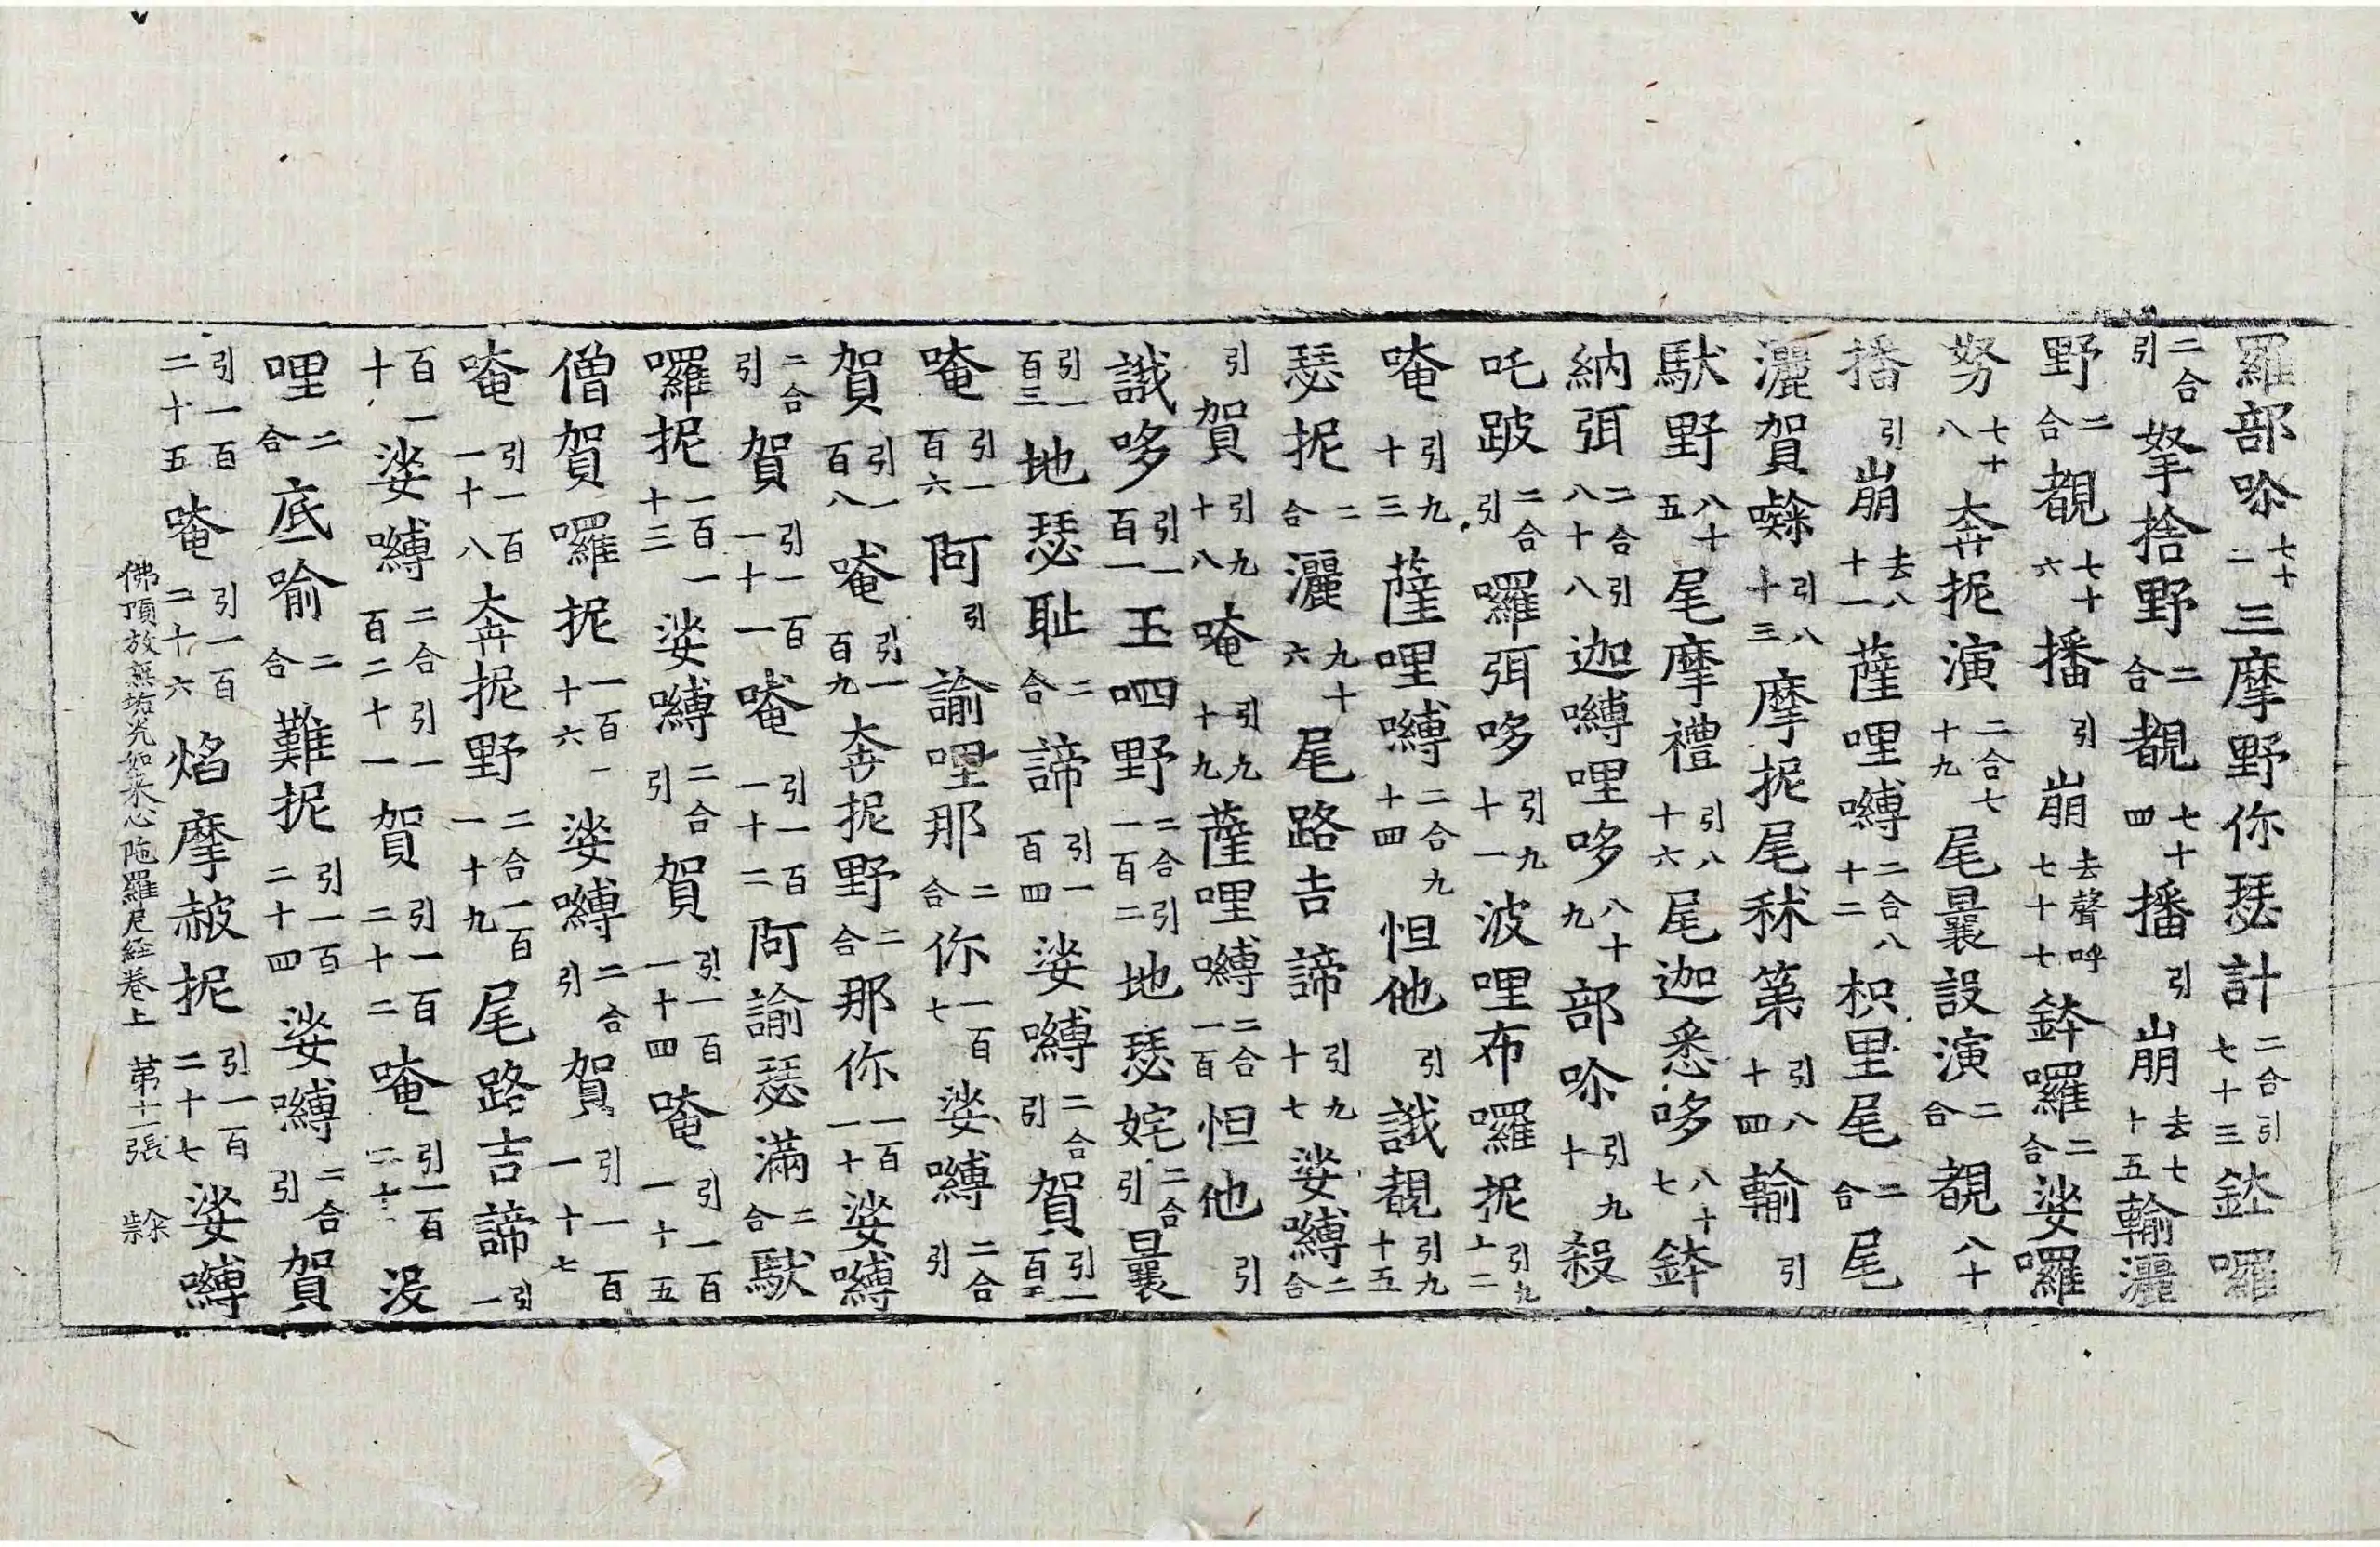 羅部唋七十二三摩野你瑟計二合引七十三鉢囉
二合引拏捨野二合覩七十四播引崩去七十五輸灑
野二合覩七十六播引崩去聲呼七十七鉢羅二合娑囉
努七十八奔抳演二合七十九尾曩設演二合覩八十
播引崩去八十一薩哩嚩二合八十二枳里尾二合尾
灑賀𡄣引八十三摩抳尾秫第引八十四輸引
馱野八十五尾摩禮引八十六尾迦悉哆八十七鉢
納弭二合引八十八迦嚩哩哆八十九部唋引九十殺
吒跛二合引囉弭哆引九十一波哩布囉抳引九十二
唵引九十三薩哩嚩二合九十四怛他引誐覩引九十五
瑟抳二合灑九十六尾路吉諦引九十七娑嚩二合
引賀引九十八唵引九十九薩哩嚩二合一百怛他引
誐哆引一百一玉呬野二合引一百二地瑟姹二合引曩
引一百三地瑟恥二合諦引一百四娑嚩二合引賀引一百五
唵引一百六阿引諭哩那二合你一百七娑嚩二合引
賀引一百八唵引一百九奔抳野二合那你一百一十娑嚩
二合引賀引一百一十一唵引一百一十二阿諭瑟滿二合馱
囉抳一百一十三娑嚩二合引賀引一百一十四唵引一百一十五
僧賀囉抳一百一十六娑嚩二合引賀引一百一十七
唵引一百一十八奔抳野二合一百一十九尾路吉諦引一
百一十娑嚩二合引一百二十一賀引一百二十二唵引一百二十 沒
哩二合底喻二合難抳引一百二十四娑嚩二合引賀
引一百二十五唵引一百二十六焰摩赦抳引一百二十七娑嚩
佛頂放無垢光如来心陁羅尼経巻上 苐十二張